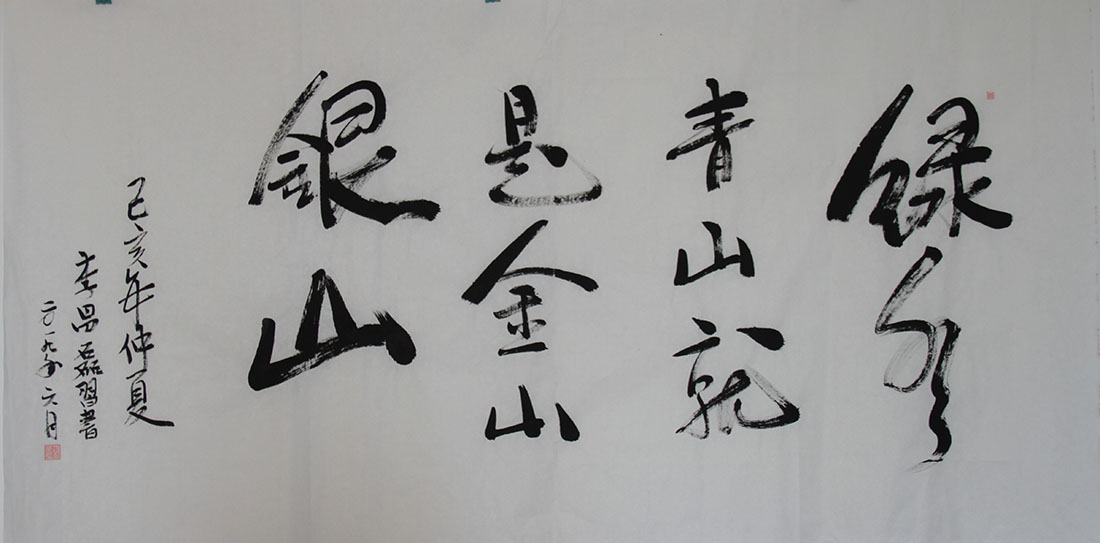 録水
青山就
是金山
銀山
己亥年仲夏
李昌磊習書
二〇一九年六月